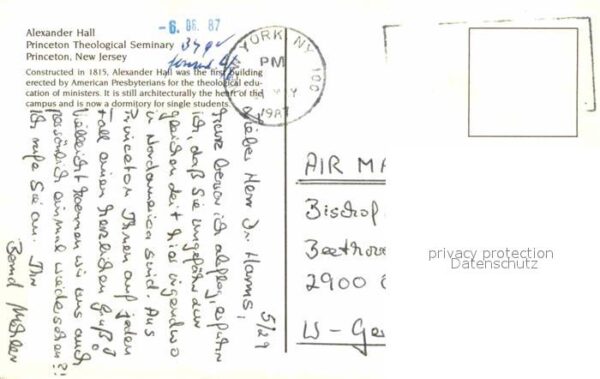 Alexander Hall
Princeton Theological Seminary
Princeton, New Jersey
Constructed in 1815, Alexander Hall was the first building
erected by American Presbyterians for the theological edu-
cation of ministers. It is still architecturally the heart of the
campus and is now a dormitory for single students.
-6. 06. 87
YORK NY 100
PM
MY
1987
5/29
Lieber Herr Dr. Harms,
kurz bevor ich abflog, erfuhr
ich, daß Sie ungefähr zur
gleichen Zeit hier irgendwo
in Nordamerica sind. Aus
Princeton Ihnen auf jeden
Fall einen herzlichen Gruß!
Vielleicht koennen wir uns auch
persönlich einmal wiedersehen?!
Ich rufe Sie an. Ihr
Bernd
AIR MA
Bischof
Beethov
2900
W - Ge
privacy protection
Datenschutz